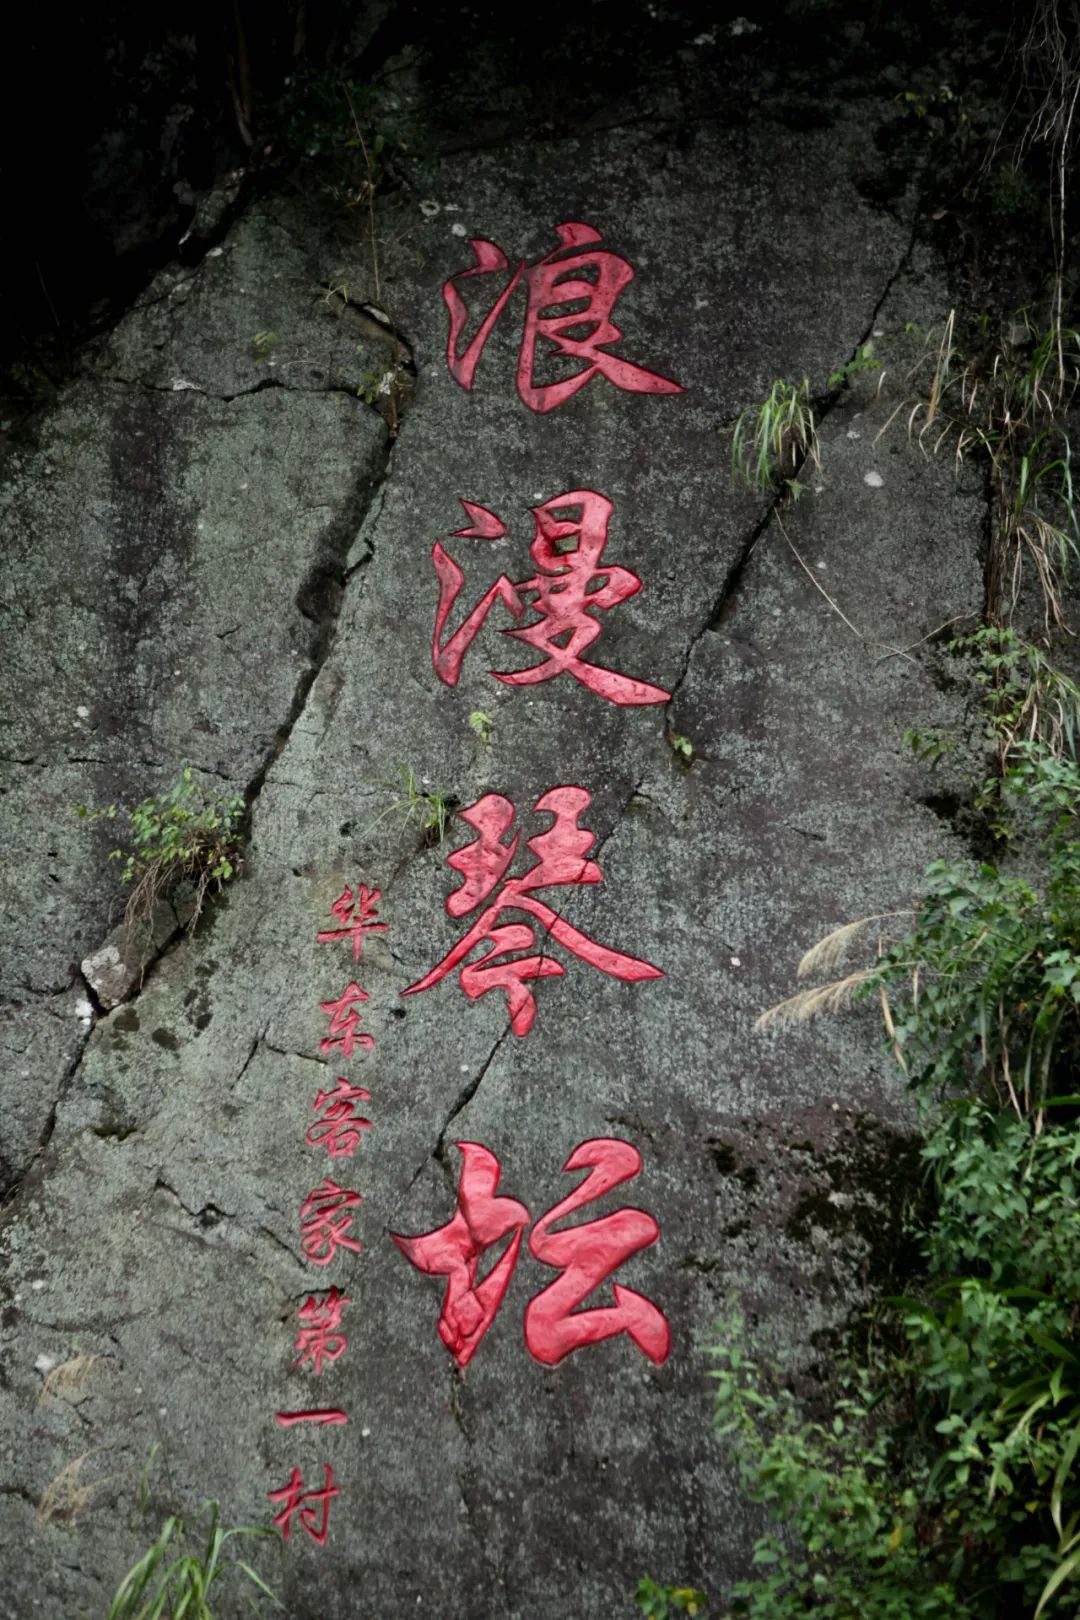 浪漫琴坛
华东客家第一村